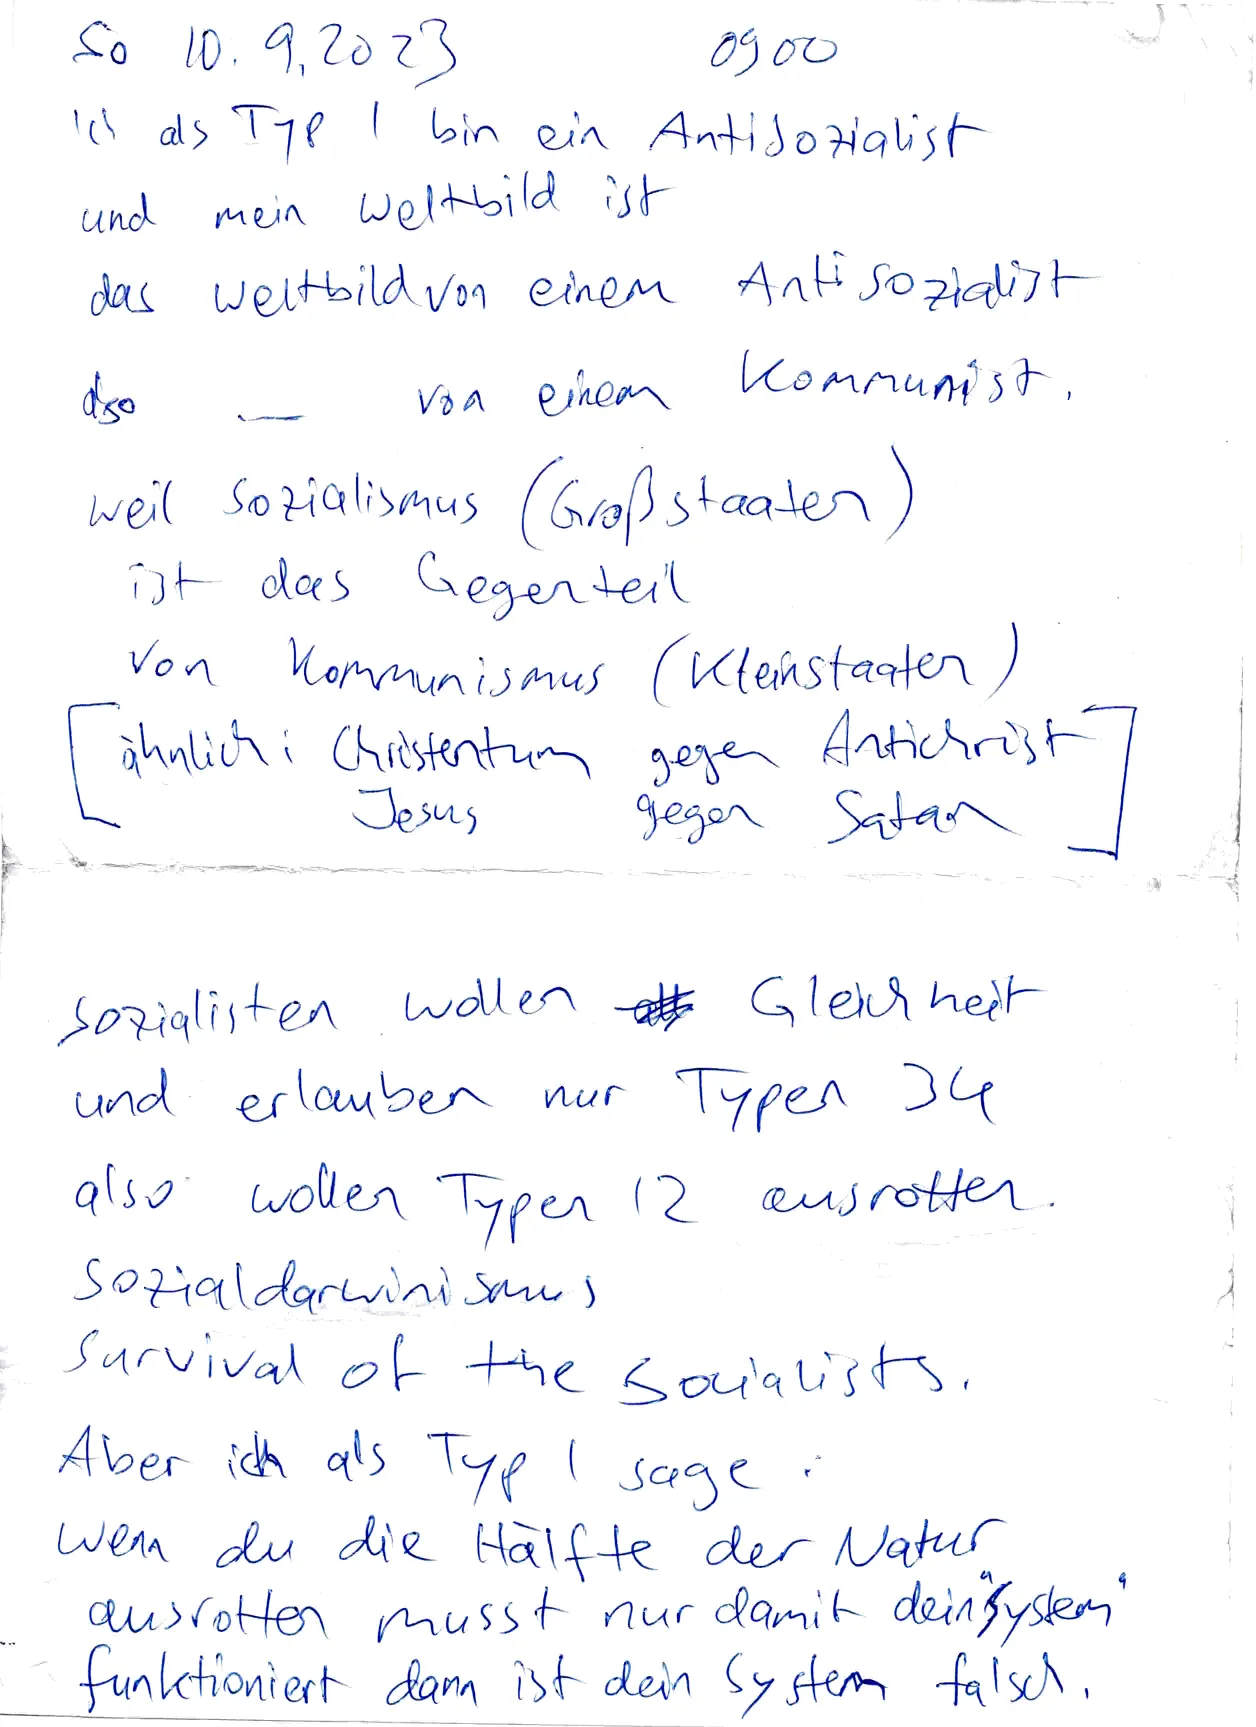 So 10.9.2023 0900
Ich als Typ 1 bin ein Antisozialist
und mein Weltbild ist
das Weltbild von einem Antisozialist
also — von einem Kommunist.
weil Sozialismus (Großstaaten)
ist das Gegenteil
von Kommunismus (Kleinstaaten)
[ähnlich: Christentum gegen Antichrist
Jesus gegen Satan]
Sozialisten wollen Gleichheit
und erlauben nur Typen 34
also wollen Typen 12 ausrotten.
Sozialdarwinismus
Survival of the Socialists.
Aber ich als Typ 1 sage:
Wenn du die Hälfte der Natur
ausrotten musst nur damit dein "System"
funktioniert dann ist dein System falsch.